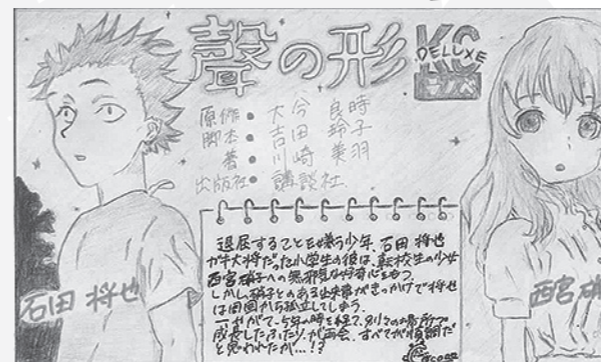 聲の形
KC
DELUXE
ノベ
原作・大今 良時
脚本・吉田 玲子
著・川崎 美羽
出版社・講談社
退屈することを嫌う少年、石田 将也
ガキ大将だった小学生の彼は、転校生の少女
西宮硝子への無邪気な好奇心をもつ。
しかし、硝子とのある出来事がきっかけで将也
は周囲から孤立してしまう。
やがて、5年の時を経て、別々の場所で
成長したふたりが再会、すべてが順調だ
と思われたが…!?
石田 将也
西宮 硝